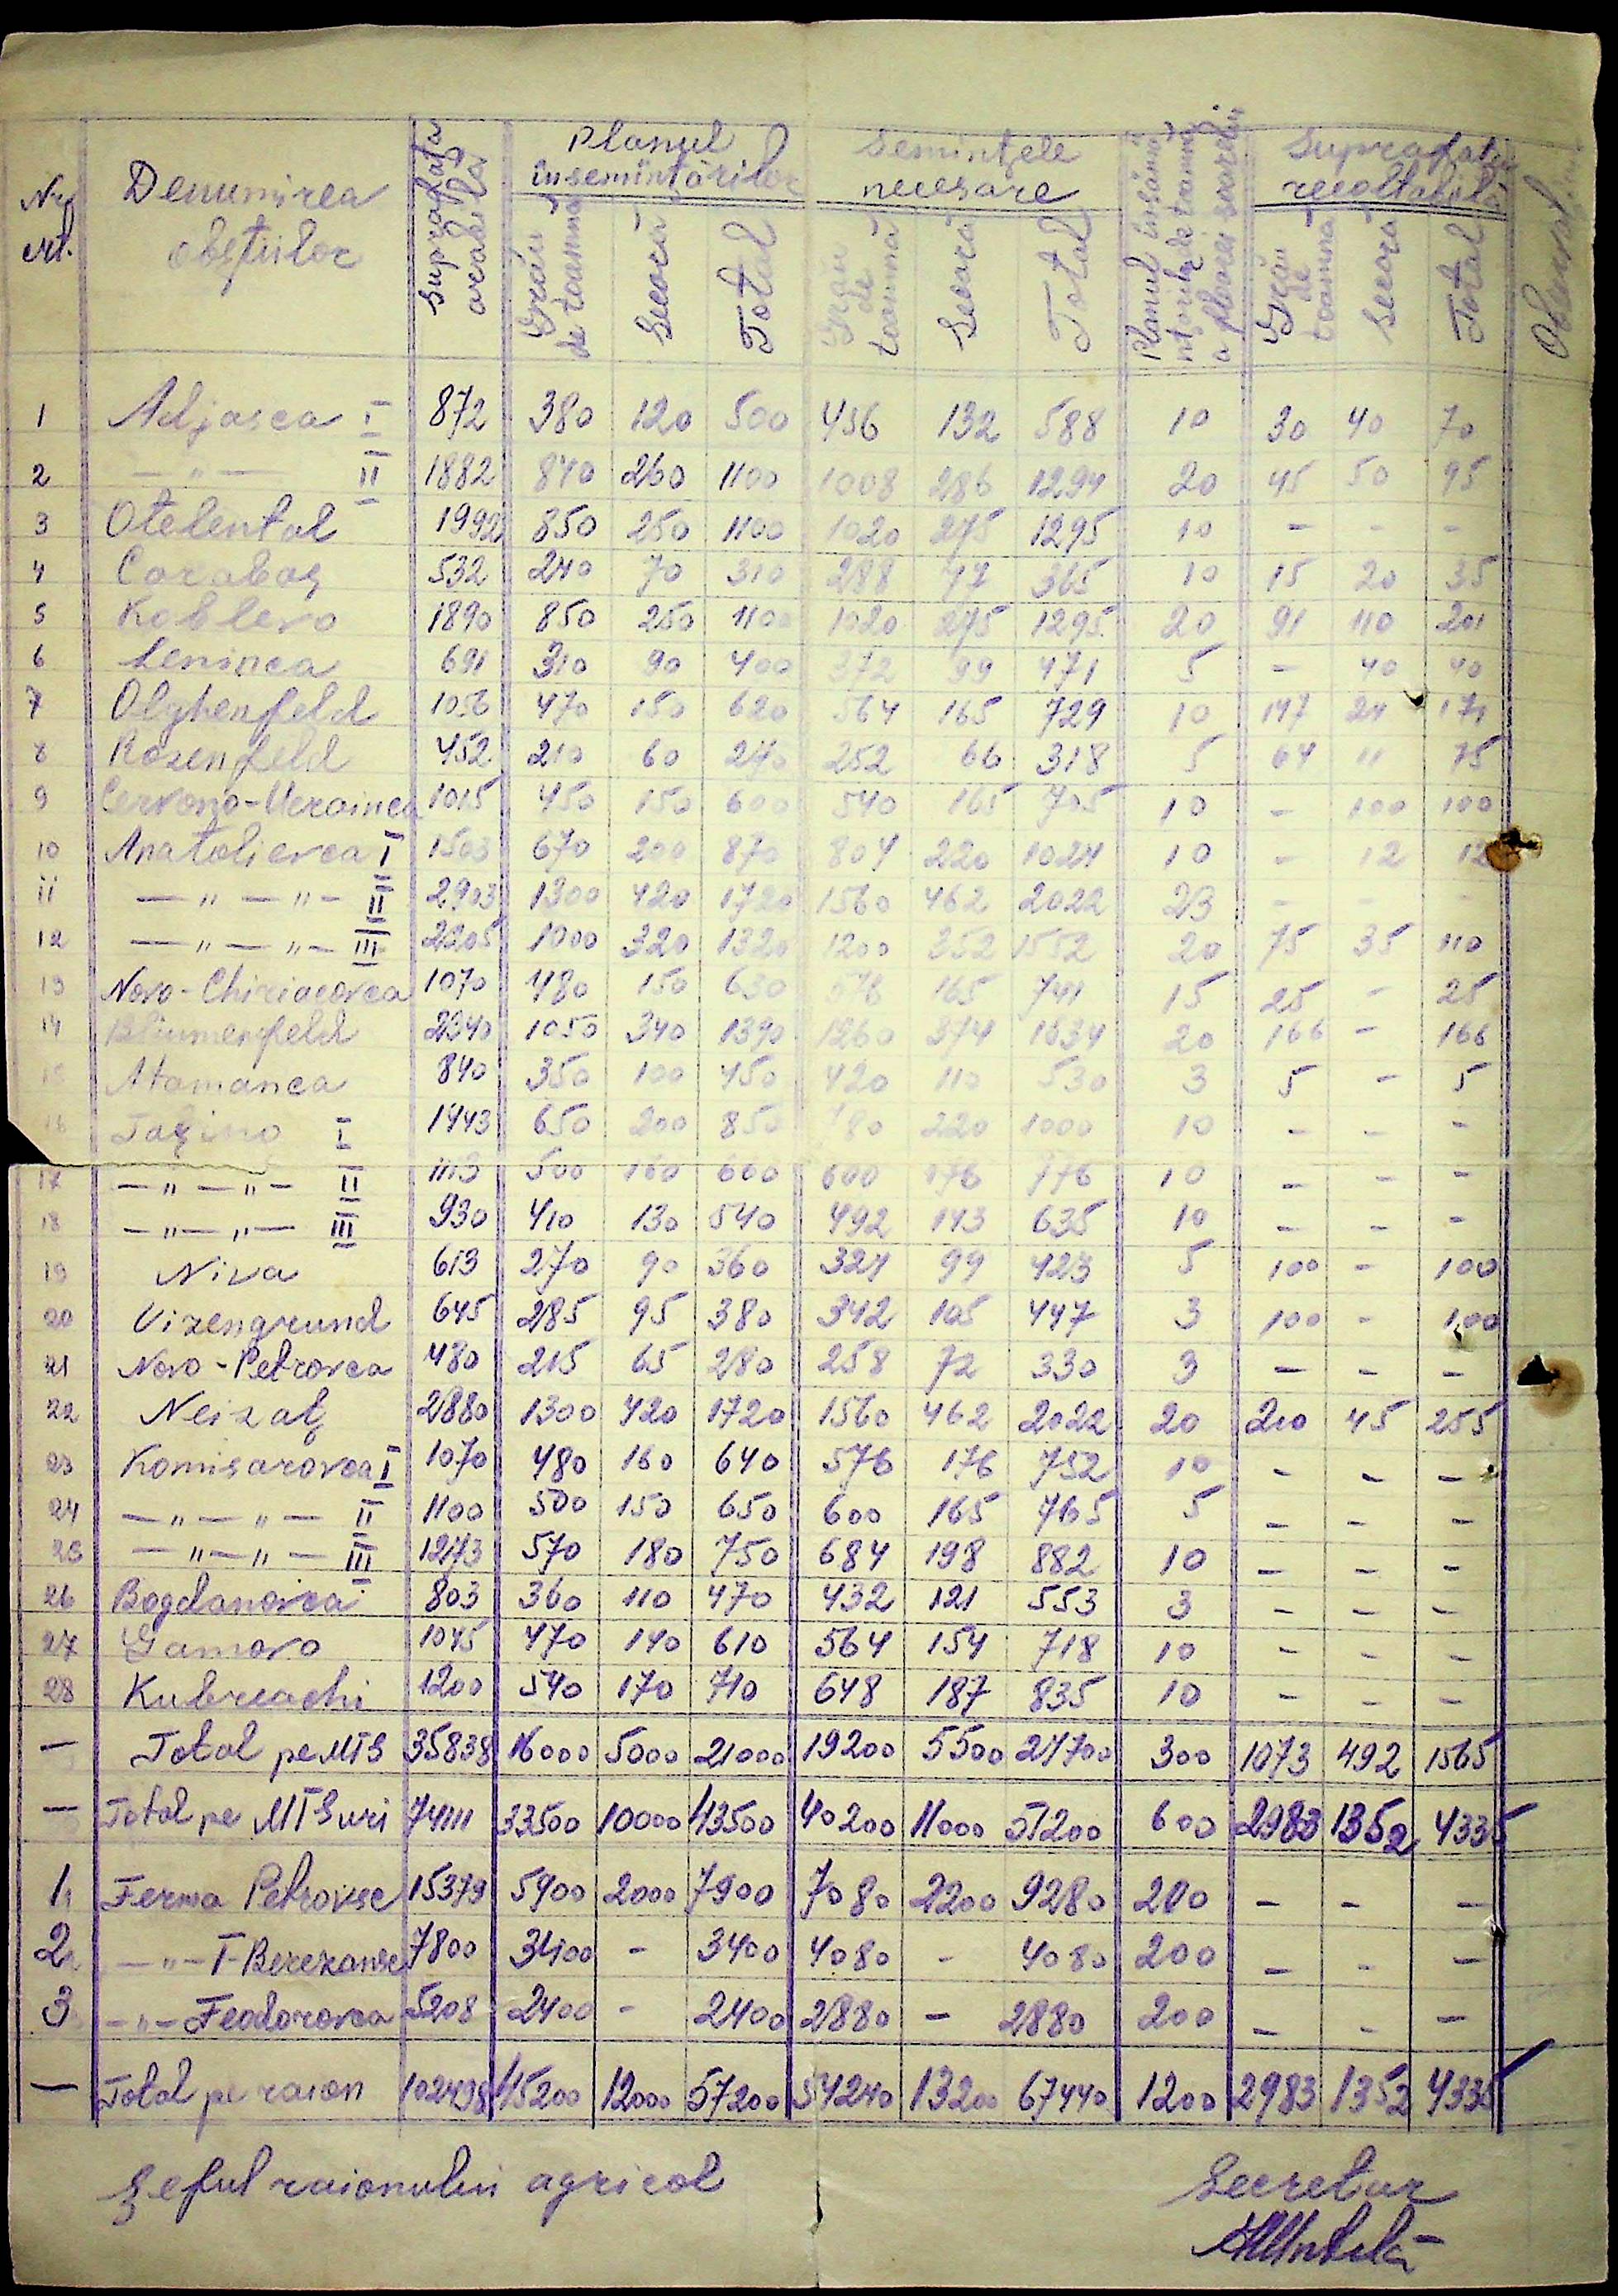 Nr. crt. | Denumirea obștiilor | Suprafața arabilă | Planul însemințărilor | Semințele necesare | Planul însămînțărilor de toamnă a florei soarelui | Suprafața recoltabilă | Observați
Grâu de toamnă | Secară | Total | Grâu de toamnă | Secară | Total | Grâu de toamnă | Secară | Total
1 Adjasca I 872 380 120 500 456 132 588 10 30 40 70
2 — " — II 1882 840 260 1100 1008 286 1294 20 45 50 95
3 Otelental 1992 850 250 1100 1020 275 1295 10 - - -
4 Carabaș 532 240 70 310 288 77 365 10 15 20 35
5 Koblevo 1890 850 250 1100 1020 275 1295 20 91 110 201
6 Leninca 691 310 90 400 372 99 471 5 - 40 40
7 Olghenfeld 1056 470 150 620 564 165 729 10 147 24 171
8 Rosenfeld 452 210 60 270 252 66 318 5 64 11 75
9 Cervono-Ucrainca 1015 450 150 600 540 165 705 10 - 100 100
10 Anatolievca I 1503 670 200 870 804 220 1024 10 - 12 12
11 — " — " — II 2903 1300 420 1720 1560 462 2022 23 - - -
12 — " — " — III 2205 1000 320 1320 1200 352 1552 20 75 35 110
13 Novo-Chiriacovca 1070 480 150 630 165 741 15 25 - 25
14 Blumenfeld 2340 1050 340 1390 1260 374 1634 20 166 - 166
15 Atamanca 840 350 100 450 420 110 530 3 5 - 5
16 Tașino I 1443 650 200 850 780 220 1000 10 - - -
17 — " — " — II 1113 500 160 660 600 176 776 10 - - -
18 — " — " — III 930 410 130 540 492 143 635 10 - - -
19 Niva 613 270 90 360 324 99 423 5 100 - 100
20 Vizengrund 645 285 95 380 342 105 447 3 100 - 100
21 Novo-Petrovca 480 215 65 280 258 72 330 3 - - -
22 Neizaț 2880 1300 420 1720 1560 462 2022 20 210 45 255
23 Komisarovca I 1070 480 160 640 576 176 752 10 - - -
24 — " — " — II 1100 500 150 650 600 165 765 5 - - -
25 — " — " — III 1273 570 180 750 684 198 882 10 - - -
26 Bogdanovca 803 360 110 470 432 121 553 3 - - -
27 Gamovo 1045 470 140 610 564 154 718 10 - - -
28 Kubreachi 1200 540 170 710 648 187 835 10 - - -
— Total pe MTS 35838 16000 5000 21000 19200 5500 24700 300 1073 492 1565
— Total pe MTSuri 74111 33500 10000 43500 40200 11000 51200 600 2983 1352 4335
1. Ferma Petrovsc 15379 5900 2000 7900 7080 2200 9280 200 - - -
2. — " — T-Berezansc 7800 3400 - 3400 4080 - 4080 200 - - -
3. — " — Feodorovca 5208 2400 - 2400 2880 - 2880 200 - - -
— Total pe raion 102498 45200 12000 57200 54240 13200 67440 1200 2983 1352 4335
Șeful raionului agricol
Secretar